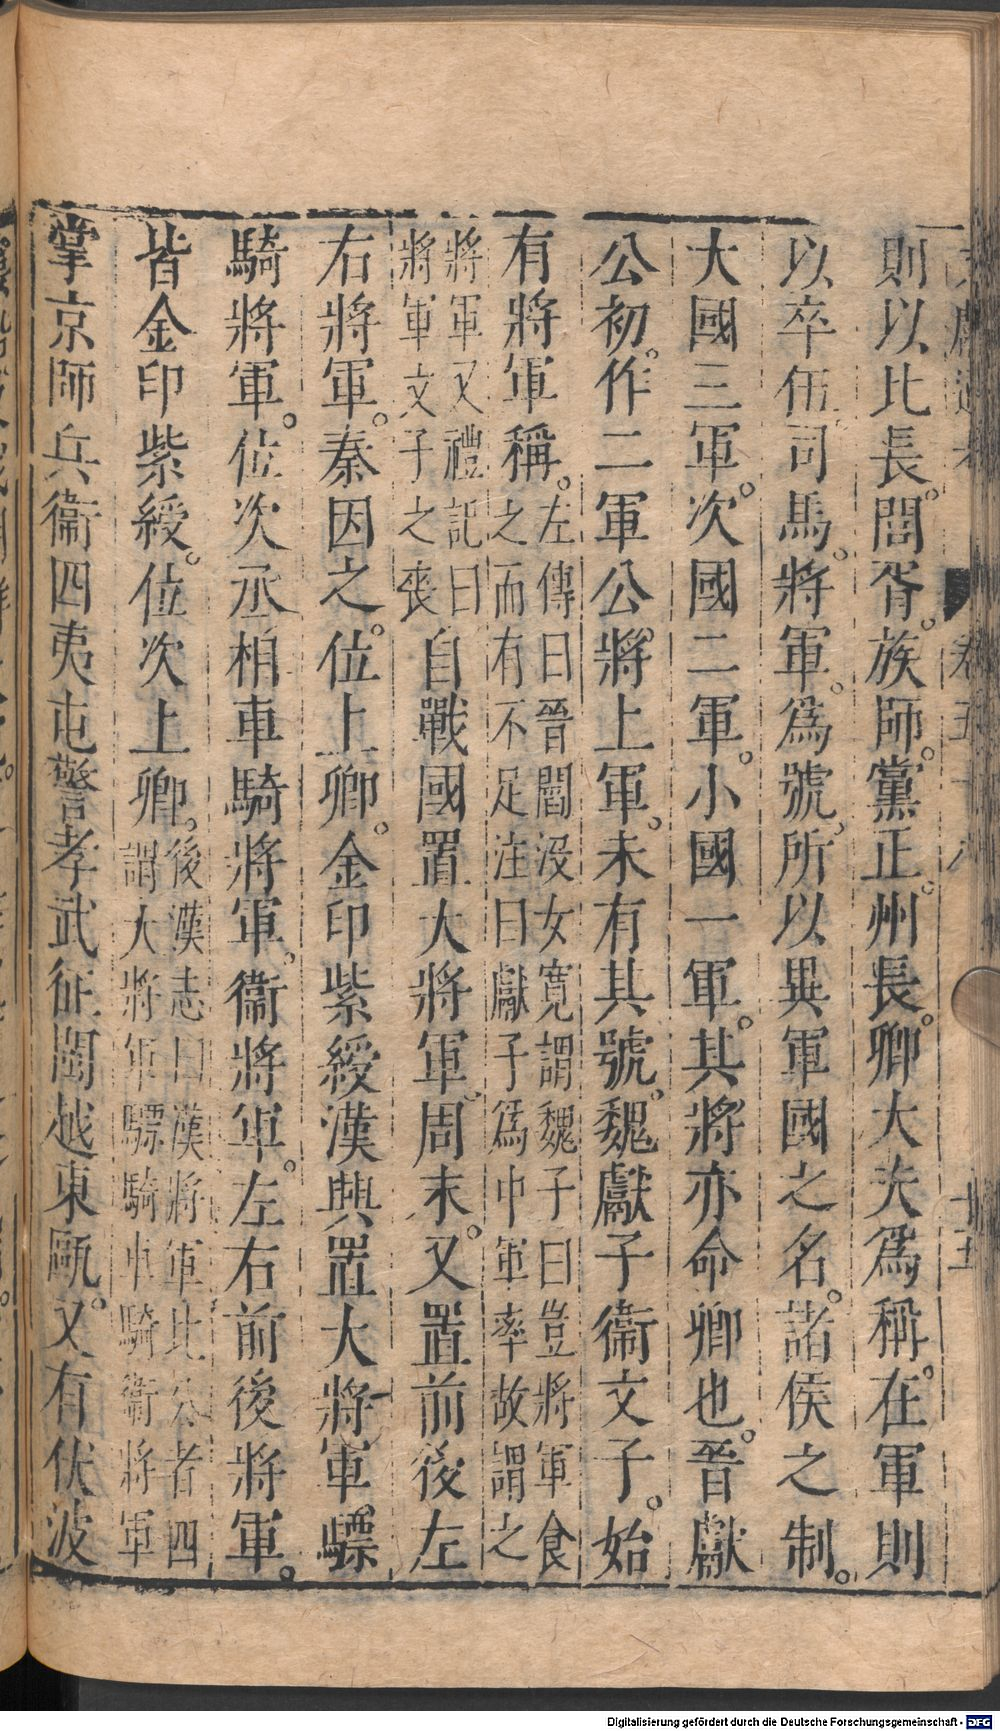 則以比長。閭胥。族師。黨正。州長。卿大夫爲稱。在軍則
以卒伍司馬。將軍。爲號。所以異軍國之名。諸侯之制。
大國三軍。次國二軍。小國一軍。其將亦命卿也。晉獻
公初。作二軍公。將上軍。未有其號。魏獻子衞文子。始
有將軍稱。左傳曰晉閻沒女寬謂魏子曰豈將軍食
之而有不足注曰獻子爲中軍率故謂之
將軍又禮記曰
將軍文子之喪
自戰國置大將軍。周末。又置前後左
右將軍。秦因之。位上卿。金印紫綬漢興置大將軍。驃
騎將軍。位次丞相車騎將軍。衞將軍。左右前後將軍。
皆金印紫綬。位次上卿。後漢志曰漢將軍比公者四
謂大將軍驃騎車騎衞將軍
掌京師兵衞四夷屯警孝武征閩越東甌。又有伏波
Digitalisierung gefördert durch die Deutsche Forschungsgemeinschaft - DFG